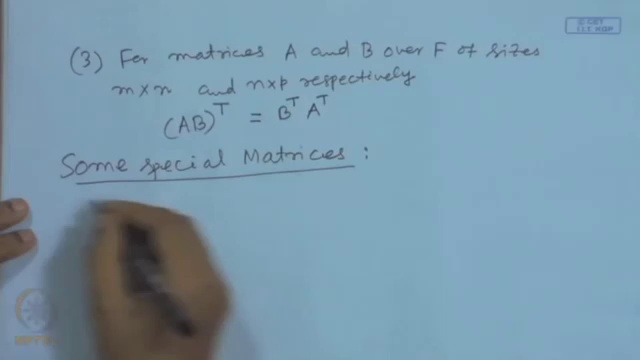 © CET
I.I.T. KGP
(3) For matrices A and B over F of sizes
m×n and n×p respectively
(AB)^T = B^T A^T
Some special Matrices :
NPTEL